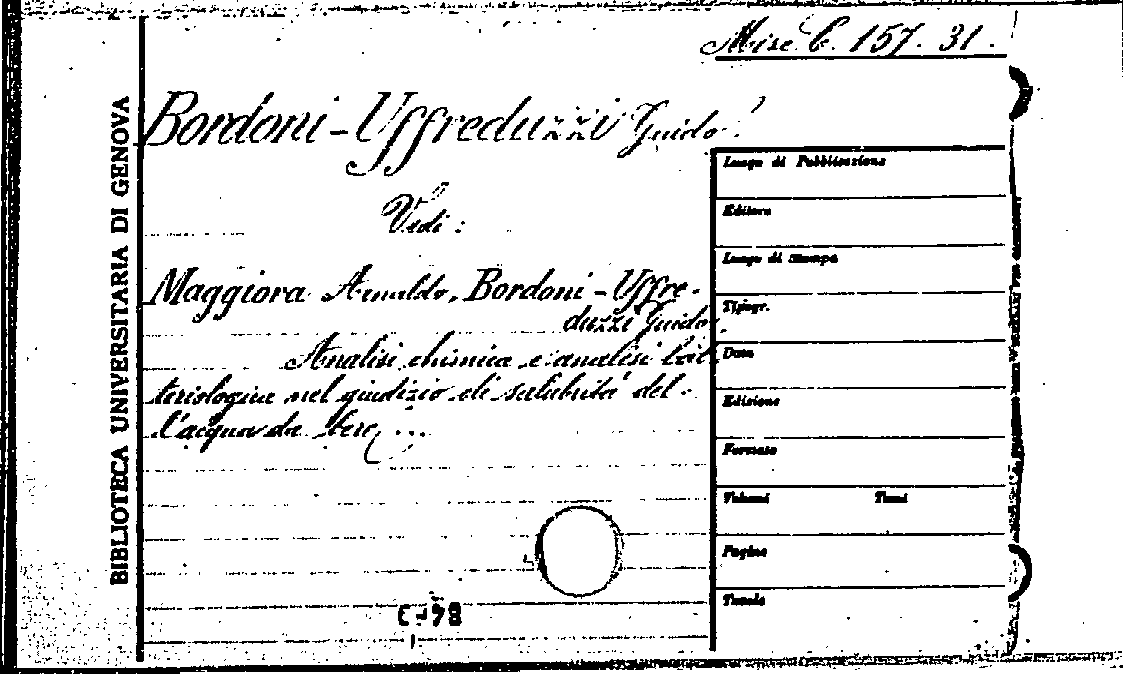 Misc. C. 157. 31.
BIBLIOTECA UNIVERSITARIA DI GENOVA
Bordoni-Uffreduzzi Guido
Vedi:
Maggiora Arnaldo, Bordoni-Uffre-
duzzi Guido.
Analisi chimica e analisi bat
teriologica nel giudizio di salubrità del-
l'acqua da bere, ...
Luogo di Pubblicazione
Editore
Luogo di Stampa
Tipogr.
Data
Edizione
Formato
Volumi Tomi
Pagine
Tavole
C-78